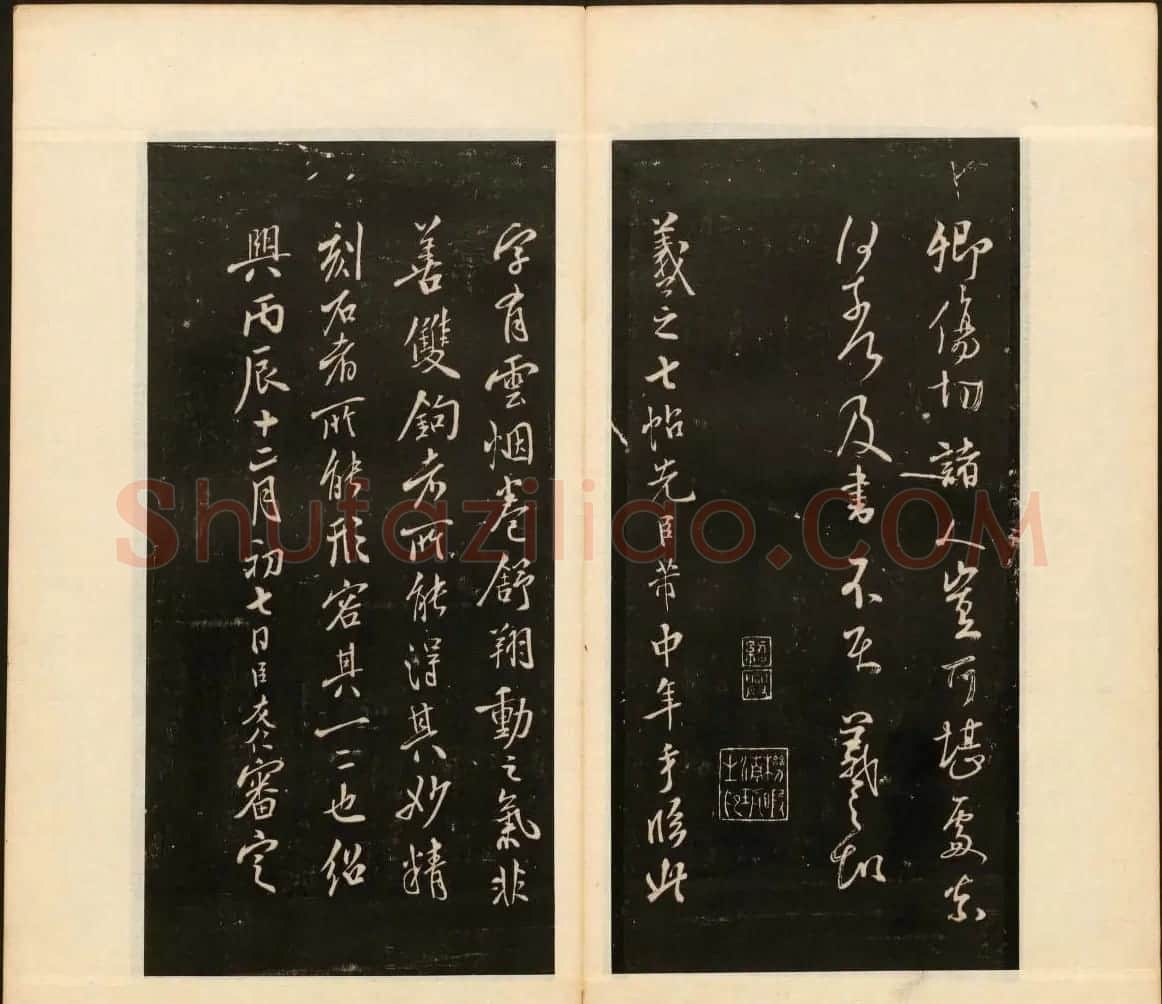 卿傷切諸人豈可堪處奈
何奈何及書不 羲之頓
紹興
羲之七帖先臣芾中年手臨此
字有雲烟卷舒翔動之氣非
善雙鉤者所能得其妙精
刻石者所能形容其一二也紹
興丙辰十二月初七日臣友仁審定
Shufaziliao.COM